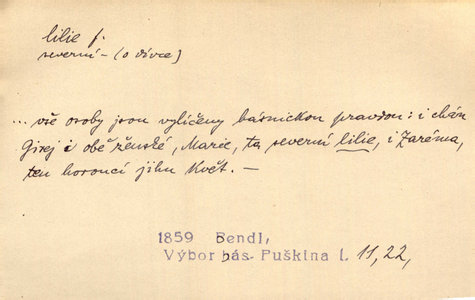 lilie f.
severní – (o dívce)
... vše osoby jsou vylíčeny básnickou pravdou: i chán
Girej i obě ženské, Marie, ta severní lilie, i Zaréma,
ten horoucí jihu Květ. —
1859 Bendl,
Výbor bás. Puškina I. 11, 22,